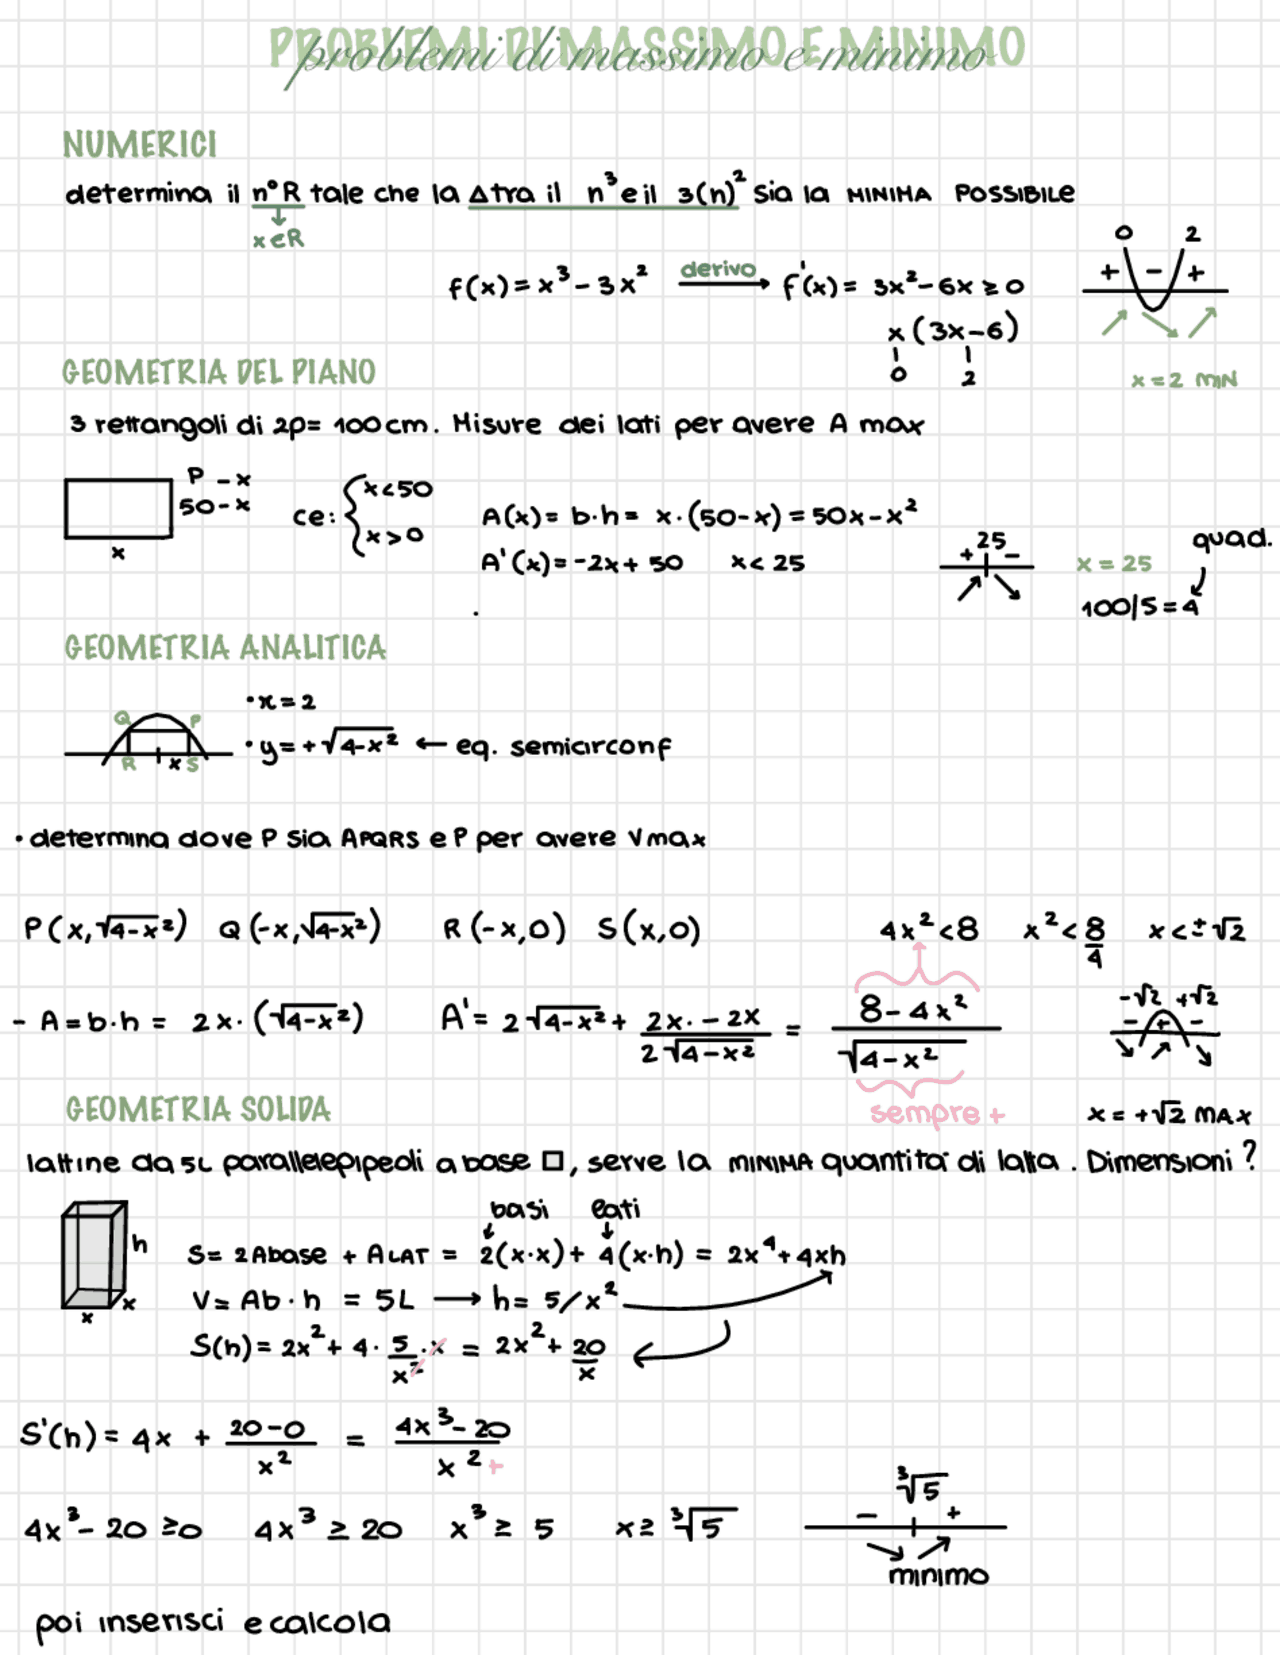 PROBLEMI DI MASSIMO E MINIMO
problemi di massimo e minimo
NUMERICI
determina il n°R tale che la Δ tra il n³ e il 3(n)² sia la MINIMA POSSIBILE
x∈R
f(x) = x³ - 3x² derivo f'(x) = 3x² - 6x ≥ 0
x(3x-6)
0 2
0 2
+ - +
x = 2 MIN
GEOMETRIA DEL PIANO
3 rettangoli di 2p= 100cm. Misure dei lati per avere A max
P - x
50 - x
x
ce: { x<50
x>0
A(x) = b·h = x·(50-x) = 50x-x²
A'(x) = -2x + 50 x < 25
25
+ -
x = 25
quad.
100/5 = 4
GEOMETRIA ANALITICA
Q P
R x S
• x = 2
• y = +√4-x² ← eq. semicirconf
• determina dove P sia APQRS e P per avere Vmax
P(x,√4-x²) Q(-x,√4-x²) R(-x,0) S(x,0) 4x²<8 x²<8/4 x<±√2
- A = b·h = 2x·(√4-x²) A' = 2√4-x² + 2x·-2x/2√4-x² = 8-4x²/√4-x²
sempre +
-√2 +√2
- + -
x = +√2 MAX
GEOMETRIA SOLIDA
lattine da 5L parallelepipedi a base □, serve la MINIMA quantità di latta. Dimensioni?
basi lati
h
x x
S = 2Abase + ALAT = 2(x·x) + 4(x·h) = 2x⁴ + 4xh
V = Ab·h = 5L → h = 5/x²
S(h) = 2x² + 4·5/x²·x = 2x² + 20/x
S'(h) = 4x + 20-0/x² = 4x³-20/x² +
4x³ - 20 ≥0 4x³ ≥ 20 x³ ≥ 5 x ≥ ³√5
³√5
- +
minimo
poi inserisci e calcola